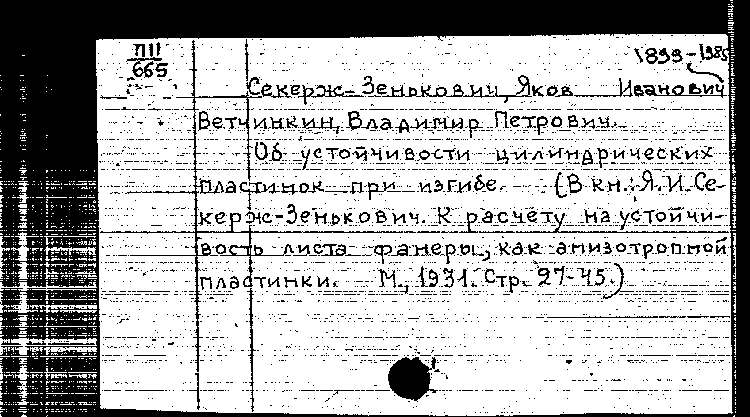 П11
665
1899-1985
Секерж-Зенькович, Яков Иванович
Ветчинкин, Владимир Петрович.
Об устойчивости цилиндрических
пластинок при изгибе. (В кн.: Я.И. Се-
керж-Зенькович. К расчёту на устойчи-
вость листа фанеры, как анизотропной
пластинки. М., 1931. Стр. 27-45.)